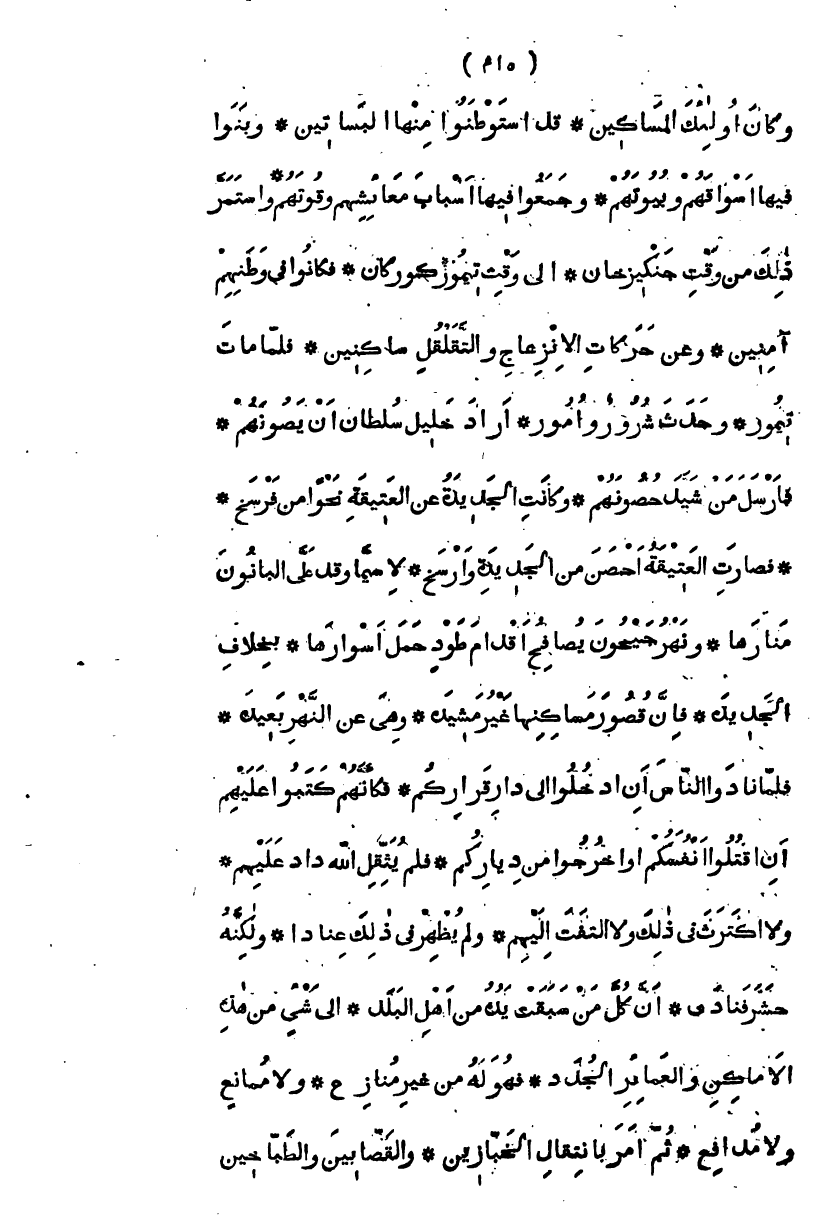 ( ٤١٥ )
وكانَ اُولٰئِكَ المَسَاكِين * قد استَوْطَنُوا مِنْها البَساتين * وبَنَوا
فيها اَسْوَاقَهُمْ وبُيُوتَهُمْ * وجَمَعُوا فِيها اَسْبابَ مَعَائِشِهِم وقُوتَهُم واستَمَرَّ
ذٰلِكَ من وَقْتِ جَنْكِيز خان * الى وَقْتِ تِيمُور كُوركان * فكانُوا في وَطَنِهِمْ
آمِنِين * وعن حَرَكاتِ الاِنْزِعاجِ والتَّقَلْقُلِ ساكِنِين * فلمّا ماتَ
تِيمُور * وحَدَثَ شُرُورٌ واُمُور * اَرادَ خَلِيل سُلطان اَنْ يَصُونَهُمْ *
فاَرْسَلَ مَنْ شَيَّدَ حُصُونَهُمْ * وكانَتِ الجَدِيدَةُ عن العَتِيقَةِ نَحْوًا من فَرْسَخ *
* فصارَتِ العَتِيْقَةُ اَحْصَنَ من الجَدِيدَةِ وَاَرْسَخ * لا سِيَّما وقد عَلَّى البانُونَ
مَنارَها * ونَهْرُ جَيْحُونَ يُصافِحُ اَقْدامَ طَوْدٍ حَمَلَ اَسْوارَها * بخِلافِ
الجَدِيدَة * فاِنَّ قُصُورَ مَساكِنِها غَيْرُ مَشِيدَة * وهِيَ عن النَّهْرِ بَعِيدَة *
فلمّا نادَوا النّاسَ اَنِ ادخُلُوا الى دارِ قَرارِكُم * فكاَنَّهُمْ كَتَبُوا عَلَيْهِم
اَنِ اقتُلُوا اَنْفُسَكُم اوِ اخرُجُوا من دِيارِكُم * فلم يُثَقِّلِ اللّه داد عَلَيْهِم *
ولا اكتَرَثَ في ذٰلِكَ ولا التفَتَ اِلَيْهِم * ولم يُظْهِرْ في ذٰلِكَ عِنادا * ولٰكِنَّهُ
حَشَرَ فَنادَى * اَنَّ كُلَّ مَنْ سَبَقَتْ يَدُهُ من اَهْلِ البَلَد * الى شَيْءٍ من هٰذِهِ
الاَماكِنِ والعَمائِرِ الجُدَد * فهُوَ لَهُ من غيرِ مُنازِع * ولا مُمانِع
ولا مُدافِع * ثُمَّ اَمَرَ بانتِقالِ الخَبّازِين * والقَصّابِينَ والطَّبّاخِين